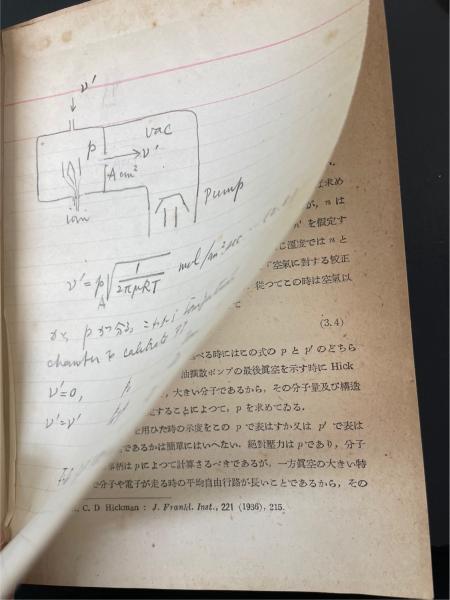 ν'
vac
p
ν'
A cm²
Pump
ion
ν' = p/A √(1/2πμRT) mol/cm² sec
から p が分る
chamber to calibrate
ν'=0, p
ν'=ν'
は求め
が，n は
n' を假定す
じ溫度では n と
「空氣に對する較正
從つてこの時は空氣以
て
(3.4)
べる時にはこの式の p と p' のどちら
油擴散ポンプの最後眞空を示す時に Hick
，大きい分子であるから，その分子量及び構造
することによつて，p を求めてゐる．
を用ひた時の示度をこの p で表はすか又は p' で表は
であるかは簡單にはいへない．絕對壓力は p であり，分子
事柄は p によつて計算さるべきであるが，一方眞空の大きい特
で分子や電子が走る時の平均自由行路が長いことであるから，その
C. D Hickman : J. Frankl. Inst., 221 (1936), 215.